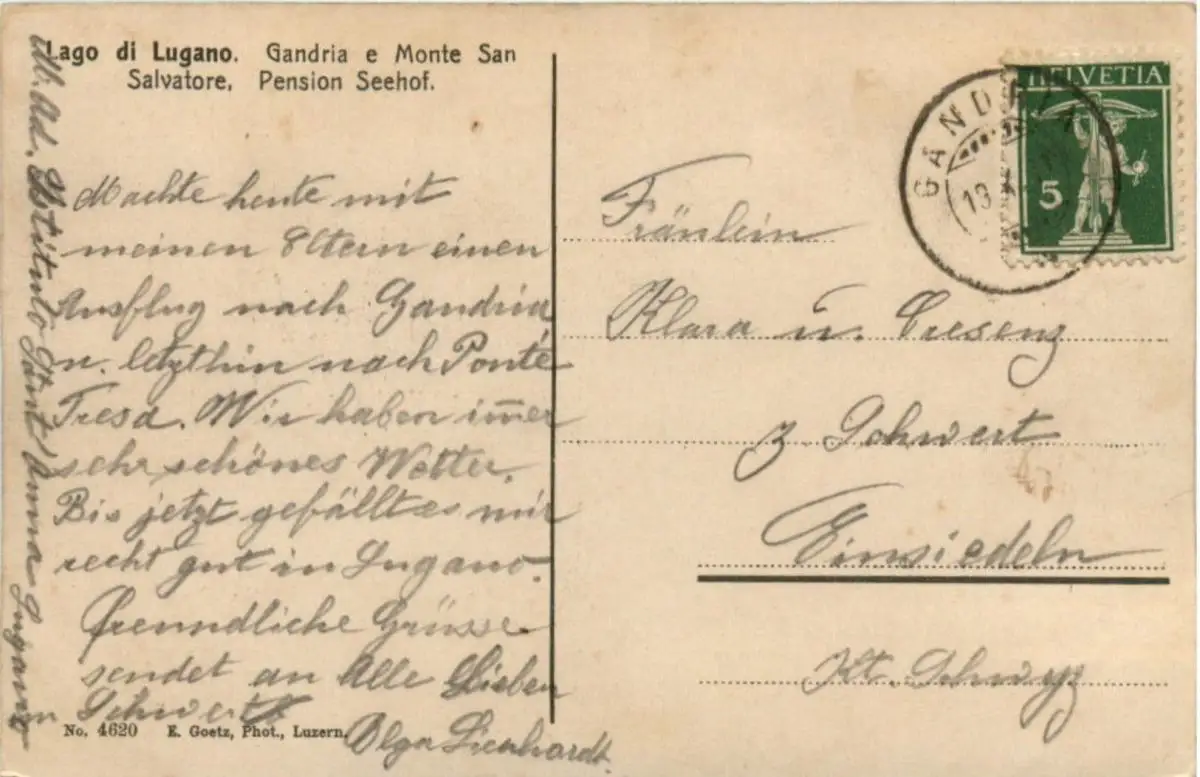 Lago di Lugano. Gandria e Monte San
Salvatore, Pension Seehof.
Machte heute mit
meinen Eltern einen
Ausflug nach Gandria
u. letzthin nach Ponte
Tresa. Wir haben im̅er
sehr schönes Wetter.
Bis jetzt gefällt es mir
recht gut in Lugano.
Freundliche Grüsse
sendet an Alle Lieben
im Schwert
Olga Lienhardt.
M. Ad. Istituto Sant Anna Lugano
No. 4620 E. Goetz, Phot., Luzern.
HELVETIA
5
GANDRIA
13
Fräulein
Klara u. Cresenz
z. Schwert
Einsiedeln
Kt. Schwyz